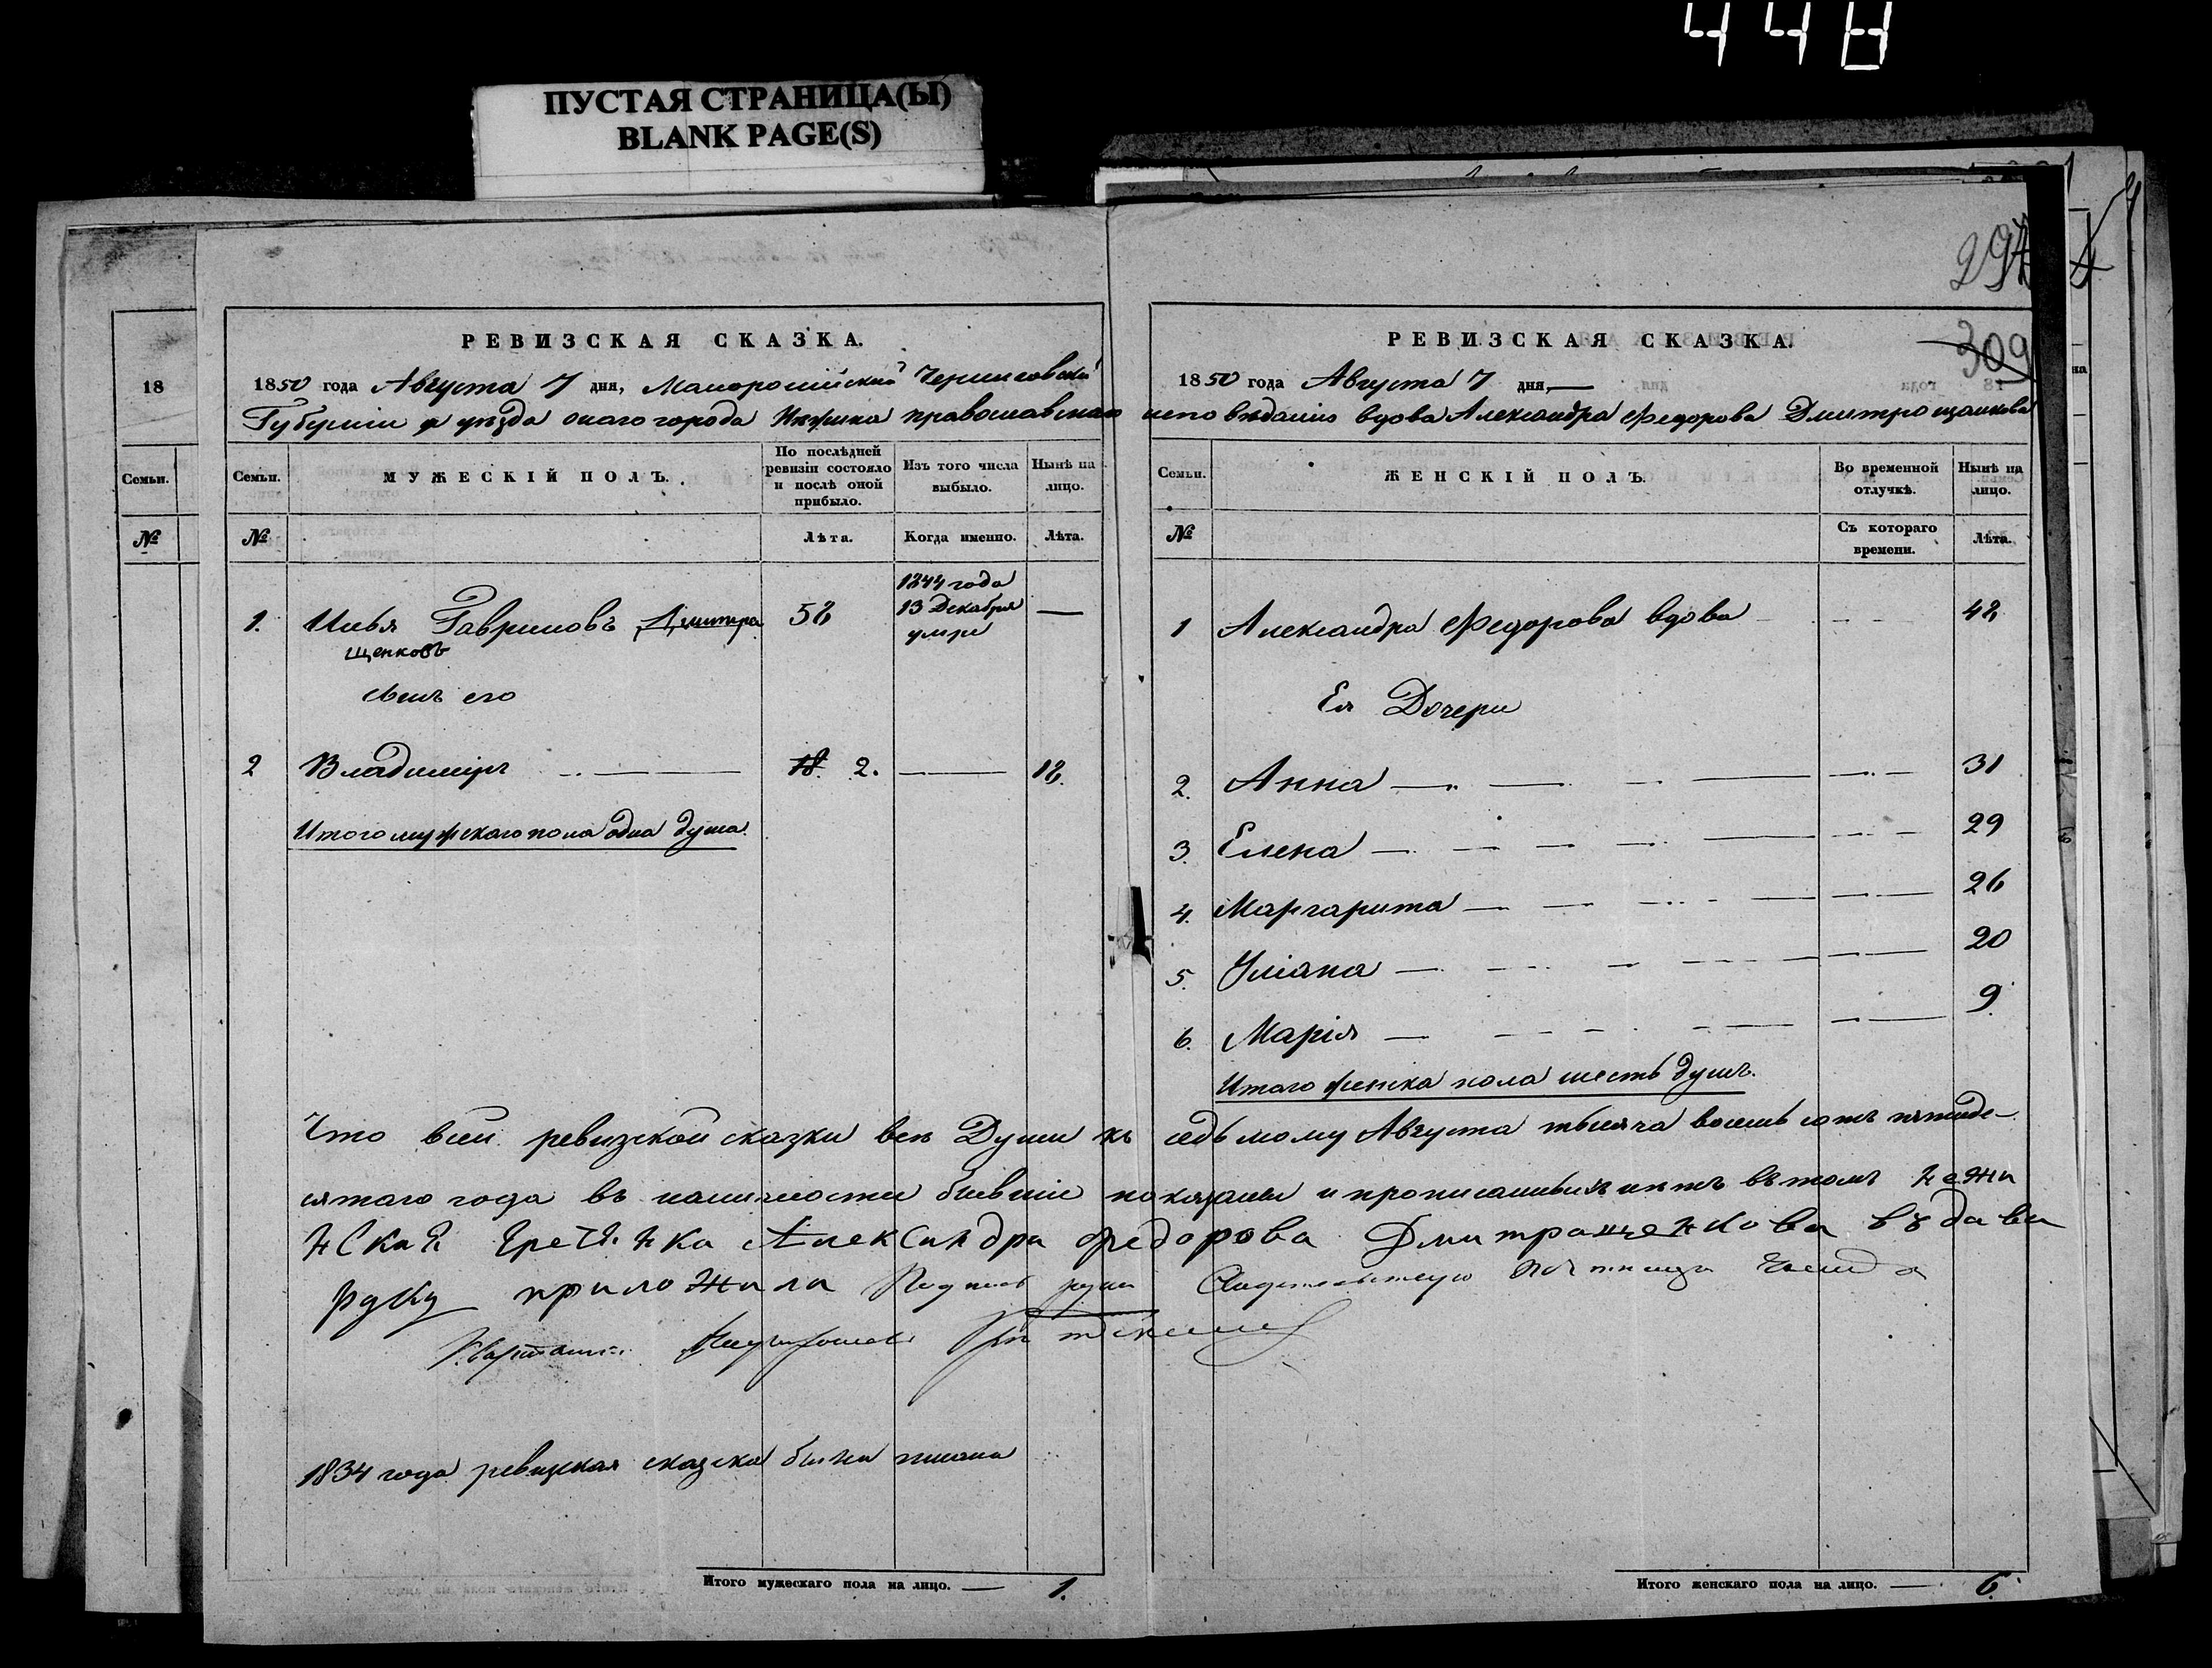 448
ПУСТАЯ СТРАНИЦА(Ы)
BLANK PAGE(S)
294
309
18
Семьи.
№
РЕВИЗСКАЯ СКАЗКА.
1850 года Августа 7 дня, Малоросійской Черниговской
Губерніи и уѣзда онаго города Нѣжина православнаго
Семьи.
МУЖЕСКІЙ ПОЛЪ.
По послѣдней ревизіи состояло и послѣ оной прибыло.
Изъ того числа выбыло.
Нынѣ на лицо.
№
Лѣта.
Когда именно.
Лѣта.
1. Илья Гавриловъ Дмитра 52 1844 года
щенковъ 13 Декабря —
умре
сынъ его
2 Владимиръ 18. 2. — 18.
Итого мужскаго пола одна душа.
РЕВИЗСКАЯ СКАЗКА.
1850 года Августа 7 дня,
исповѣданію вдова Александра Федорова Дмитрощенкова
Семьи.
ЖЕНСКІЙ ПОЛЪ.
Во временной отлучкѣ.
Нынѣ на лицо.
№
Съ котораго времени.
Лѣта.
1 Александра Федорова вдова 48
Ея Дочери
2. Анна 31
3. Елена 29
4. Маргарита 26
5. Уліана 20
6. Марія 9.
Итого женска пола шесть душъ.
Что всей ревизской сказки всѣ Души къ седьмому Августа тысяча восемь сотъ пятиде-
сятаго года въ наличности бывшіе показаны и прописанныхъ нѣтъ въ томъ нежи
нская гречанка Александра Федорова Дмитращенкова вдова
руку приложила Подпись руки Свидетельствую
1834 года ревизская сказка была писана
Итого мужескаго пола на лицо. — 1.
Итого женскаго пола на лицо. — 6.